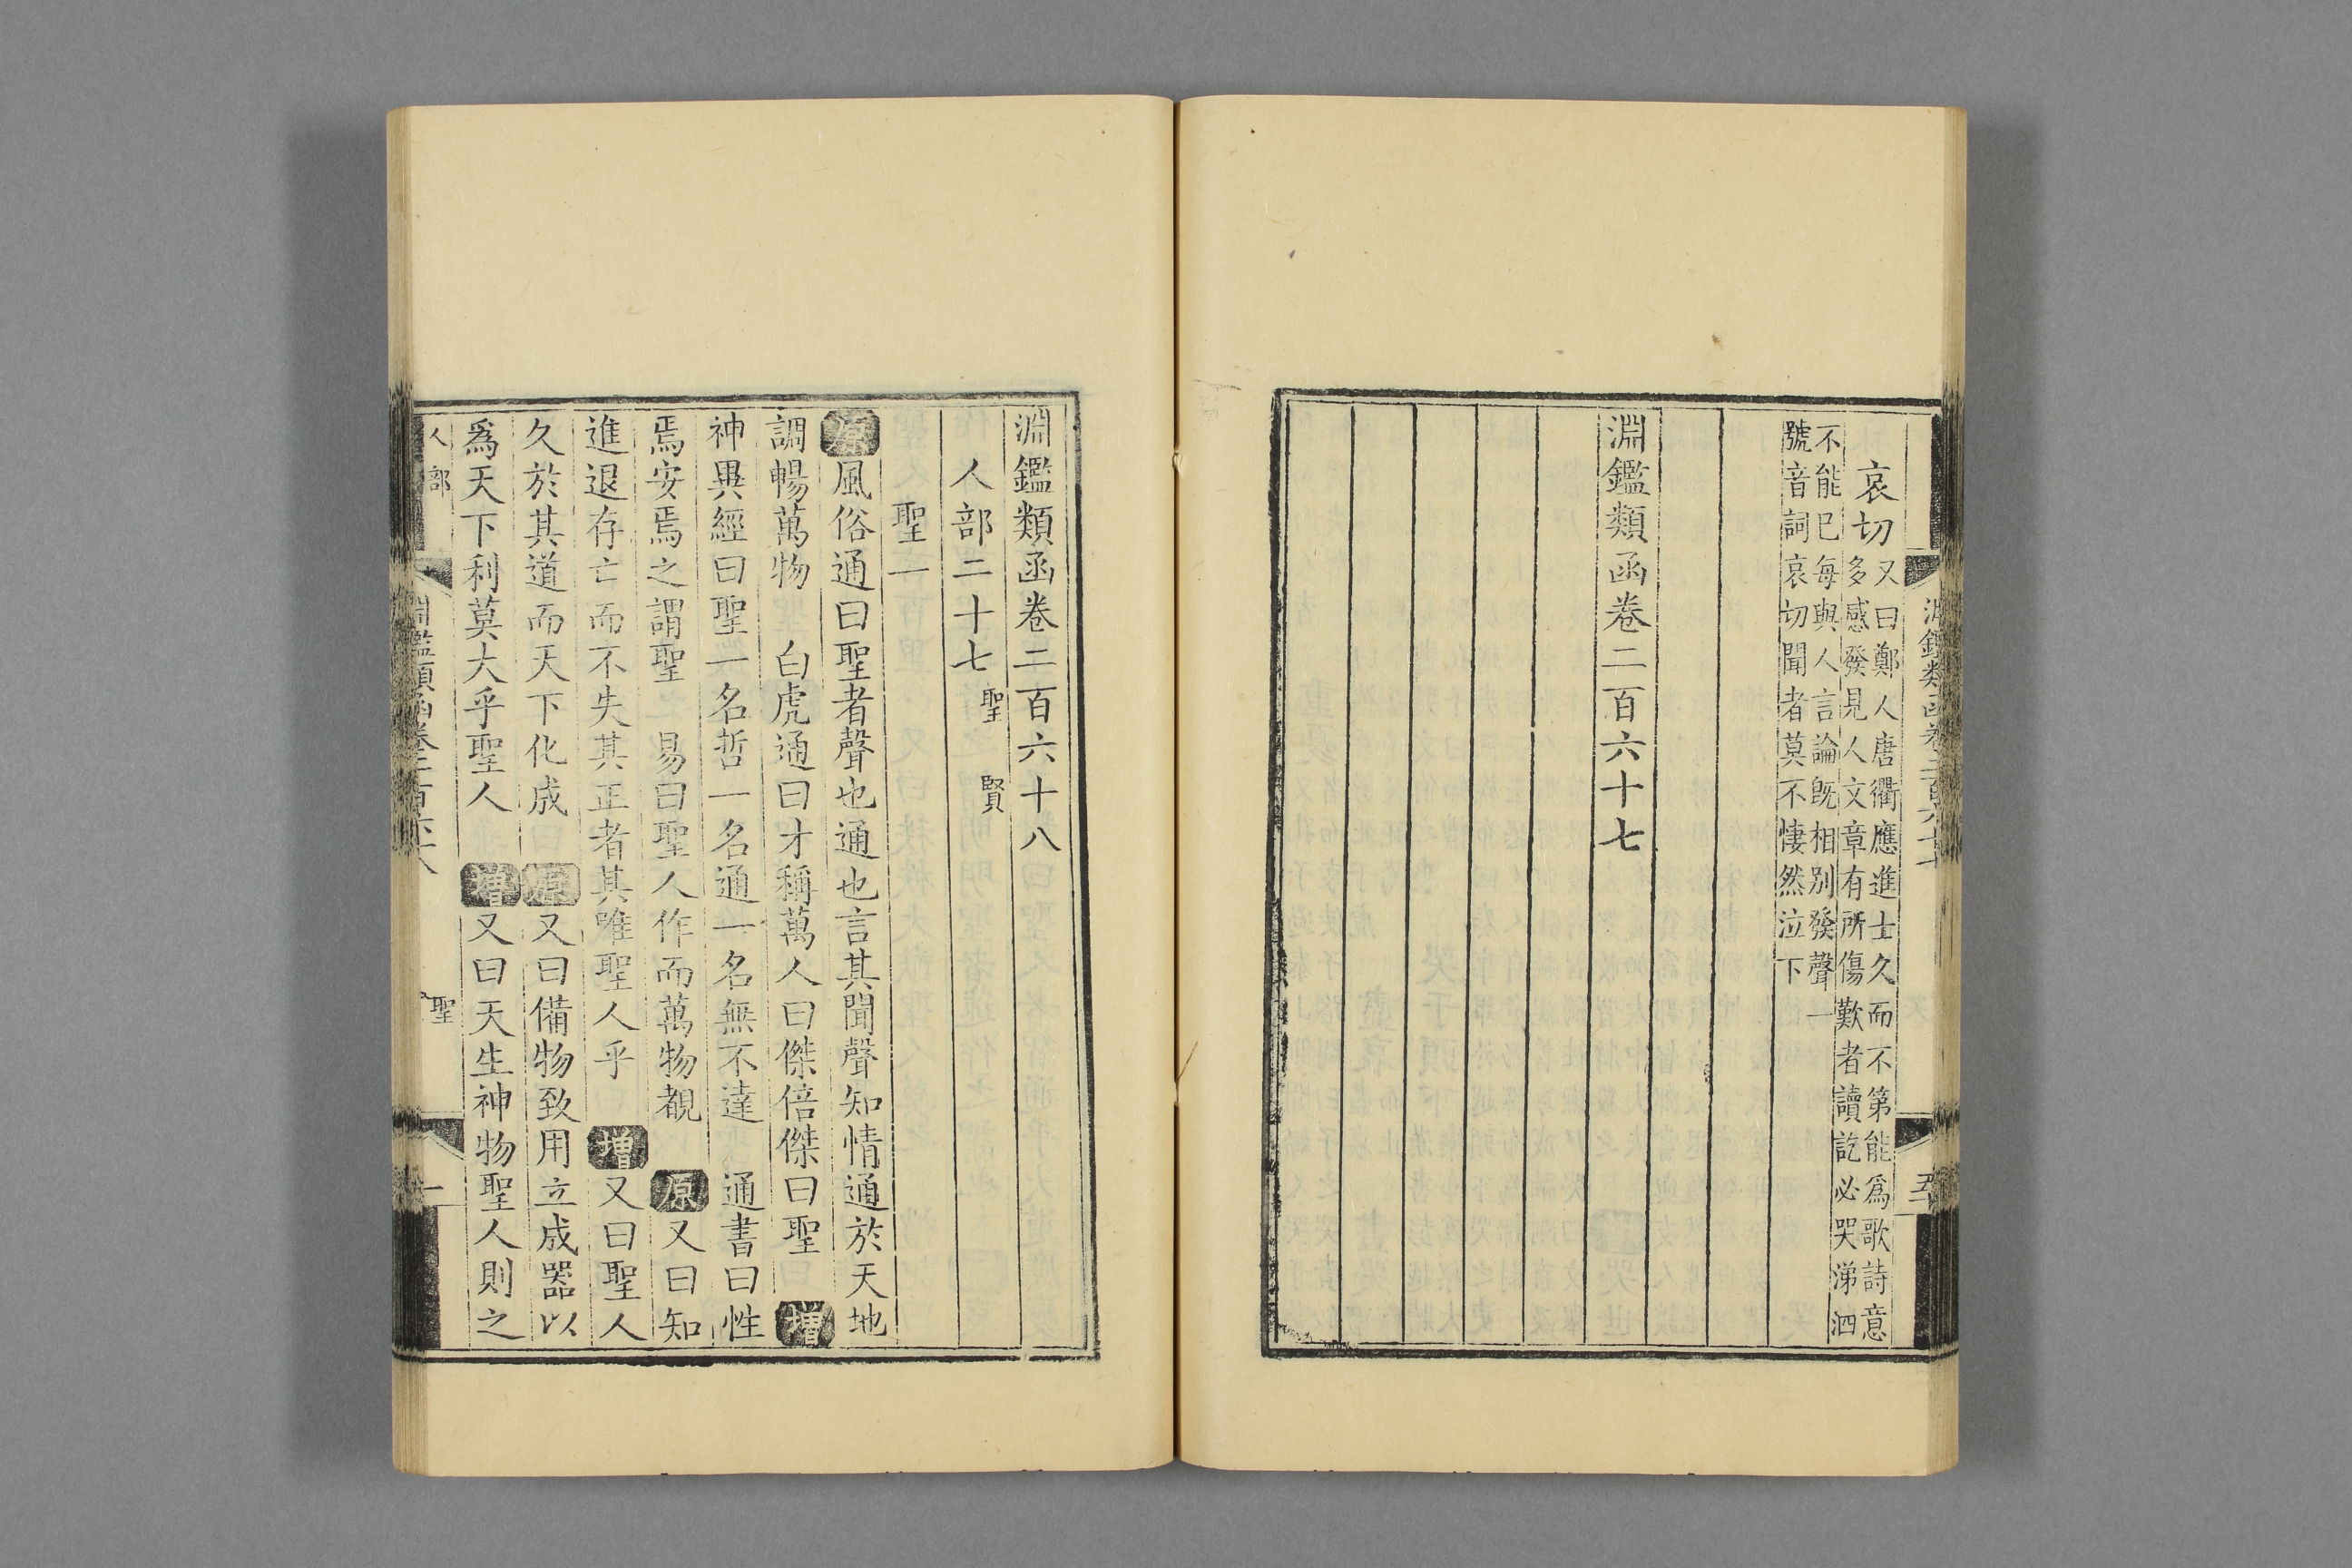 哀切又曰鄭人唐衢應進士久而不第能爲歌詩意
多感發見人文章有所傷歎者讀訖必哭涕泗
不能已每與人言論既相別發聲一
號音詞哀切聞者莫不悽然泣下
淵鑑類函卷二百六十七
淵鑑類函卷二百六十八
人部二十七 聖 賢
聖一
原風俗通曰聖者聲也通也言其聞聲知情通於天地
調暢萬物 白虎通曰才稱萬人曰傑倍傑曰聖 增
神異經曰聖一名哲一名通一名無不達 通書曰性
焉安焉之謂聖 易曰聖人作而萬物覩 原又曰知
進退存亡而不失其正者其唯聖人乎 增又曰聖人
久於其道而天下化成 原又曰備物致用立成器以
爲天下利莫大乎聖人 增又曰天生神物聖人則之
人部 淵鑑類函卷二百六十八 聖 一